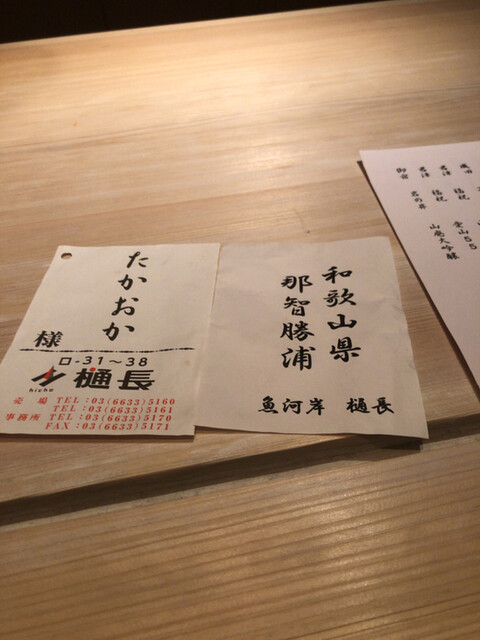 たかおか
様
ロ-31～38
樋長
hicho
売場 TEL:03(6633)5160
TEL:03(6633)5161
事務所 TEL:03(6633)5170
FAX:03(6633)5171
和歌山県
那智勝浦
魚河岸 樋長
君津 福祝
君津 福祝 山廃大吟醸
御宿 岩の井